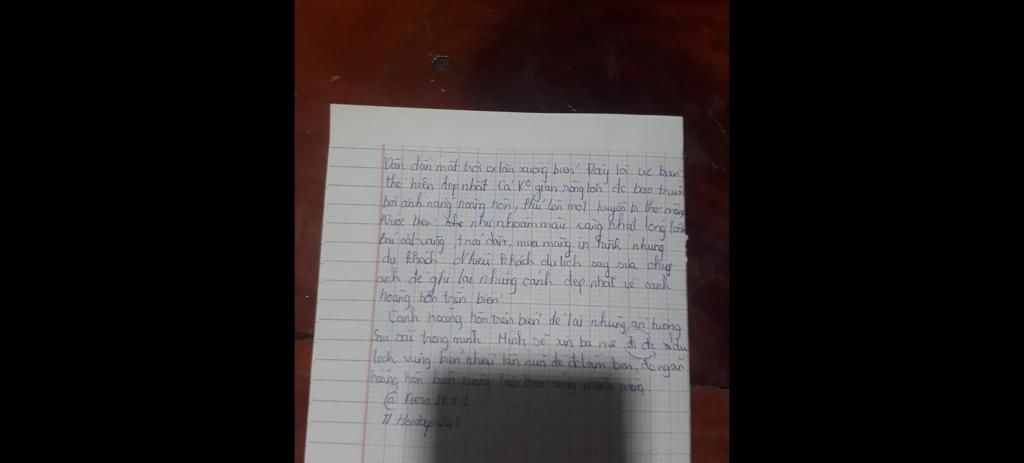 Dần dần mặt trời lặn xuống biển. Đây là lúc biển
thể hiện đẹp nhất. Cả ko gian rộng lớn đc bao trùm
bởi ánh nắng hoàng hôn, Phủ lên một huyền bí thơ mộng
Nước biển như nhuốm màu vàng nhạt long lanh
Bãi cát vàng, trải dài, in hình những
du khách. Nhiều khách du lịch say sưa chụp
ảnh để ghi lại những cảnh đẹp nhất về cảnh
hoàng hôn trên biển.
Cảnh hoàng hôn trên biển để lại những ấn tượng
sâu sắc trong mình. Mình sẽ xin ba mẹ đi du
lịch vùng biển nhiều lần nữa để đc tắm biển, để ngắm
hoàng hôn buông xuống trên biển mênh mông.
# Hoidap247